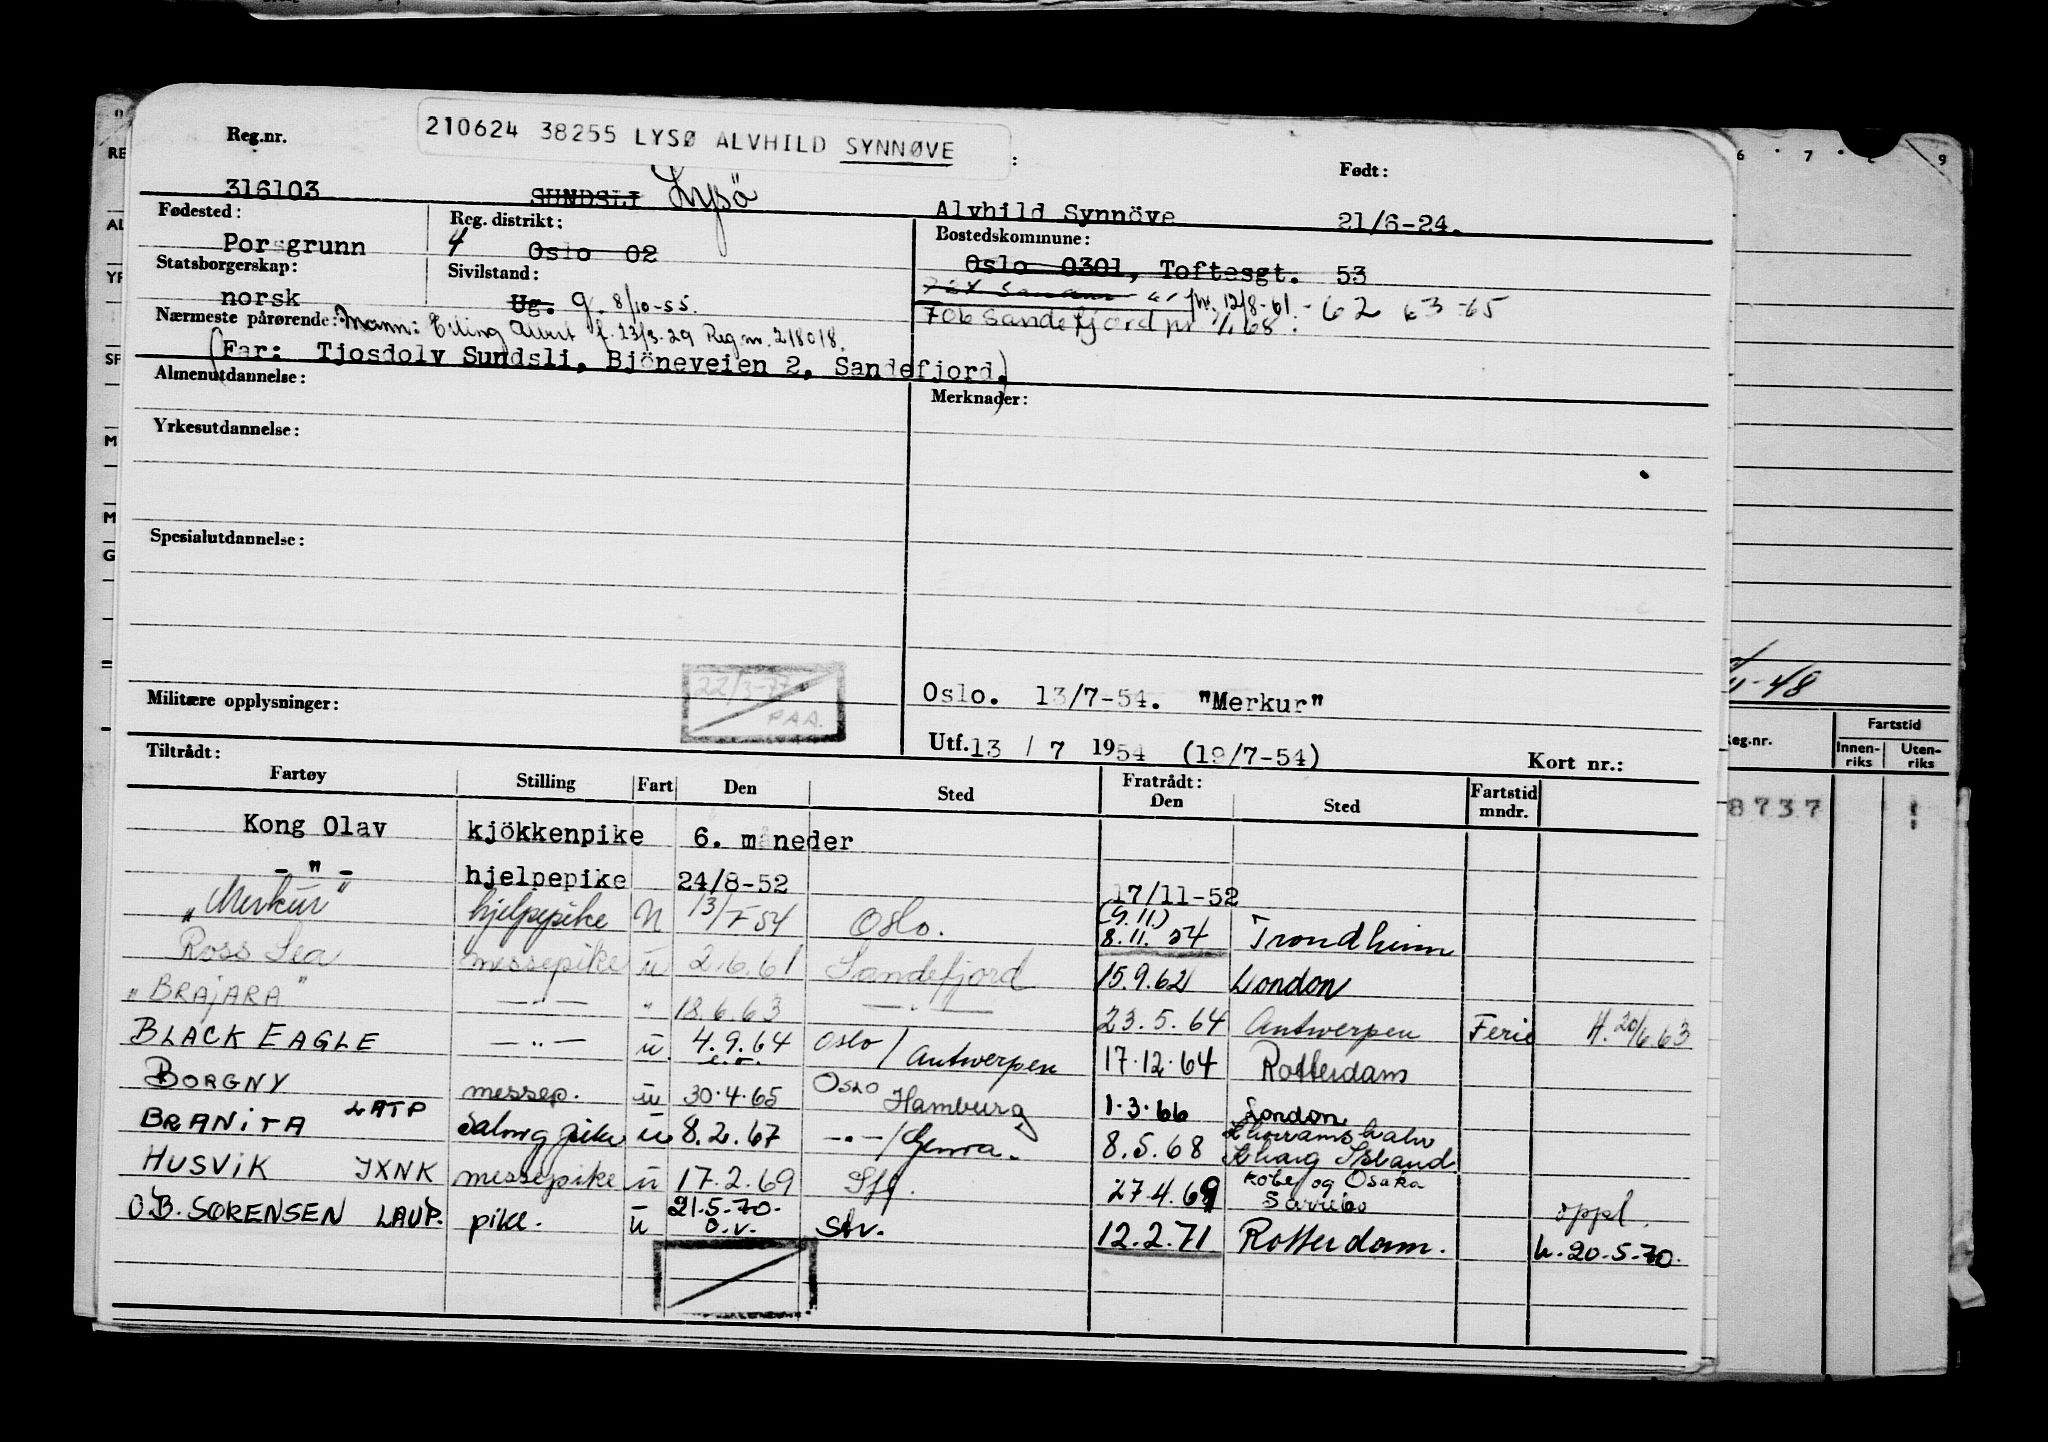 210624 38255 LYSØ ALVHILD SYNNØVE
Reg.nr. : Født:
316103 SUNDSLI Lysö Alvhild Synnöve 21/6-24.
Fødested: Reg. distrikt: Bostedskommune:
Porsgrunn 4 Oslo 02 Oslo 0301, Toftesgt. 53
Statsborgerskap: Sivilstand:
norsk Ug. g. 8/10-55. 12/8-61. - 62 63 -65
Nærmeste pårørende: Mann: Erling Albert f. 23/3-29 Reg.nr. 218018. 706 Sandefjord pr 1/1 68.
(Far: Tjosdolv Sundsli, Bjöneveien 2, Sandefjord.)
Almenutdannelse: Merknader:
Yrkesutdannelse:
Spesialutdannelse:
22/3-77
PAA.
Militære opplysninger: Oslo. 13/7-54. "Merkur"
Utf. 13 / 7 1954 (19/7-54) Kort nr.:
Tiltrådt: Fratrådt:
Fartøy Stilling Fart Den Sted Den Sted Fartstid mndr.
Kong Olav kjökkenpike 6. måneder
- " - hjelpepike 24/8-52 17/11-52
"Merkur" hjelpepike N 13/7 54 Oslo. (9.11) 8.11.54 Trondheim
Ross Sea messepike u 2.6.61 Sandefjord 15.9.62 London
"BRAJARA" — " — " 18.6.63 — " — 23.5.64 Antwerpen Ferie H. 20/6.63
BLACK EAGLE — " — u 4.9.64 e.o. Oslo / Antwerpen 17.12.64 Rotterdam
BORGNY LATP messep. u 30.4.65 Oslo Hamburg 1.3.66 London
BRANITA Salongpike u 8.2.67 — " — / Genova. 8.5.68 Kharg Island
HUSVIK JXNK messepike u 17.2.69 Sfj. 27.4.69 Kobe og Osaka
O.B. SØRENSEN LAUP. pike. u 21.5.70. o.v. Stv. 12.2.71 Rotterdam. oppl. h. 20.5.70.
RE
AL
YR
SF
M
M
G
6 7 9
11-48
Reg.nr. Fartstid
Innenriks Utenriks
8737